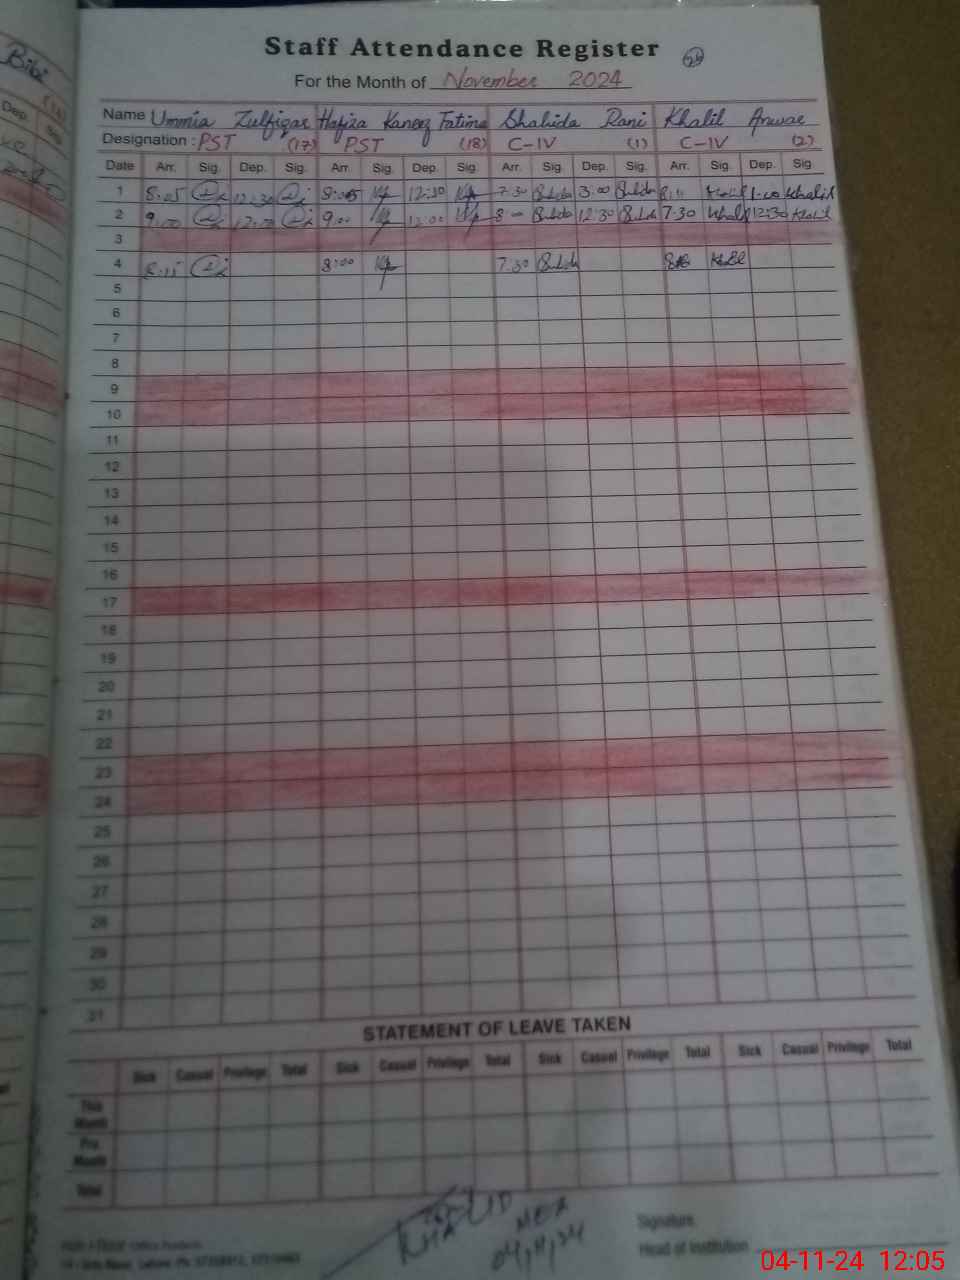 Bibi
(16)
Dep. Sig.
Staff Attendance Register
For the Month of November 2024
Name Ummia Zulfiqar Hafiza Kaneez Fatima Shahida Rani Khalil Anwar
Designation : PST (17) PST (18) C-IV (1) C-IV (2)
Date Arr. Sig. Dep. Sig. Arr. Sig. Dep. Sig. Arr. Sig. Dep. Sig. Arr. Sig. Dep. Sig.
1 8:05 12:30 8:05 12:30 7:30 3:00 1:00 Khalil
2 9:00 12:00 9:00 12:00 8:00 12:30 7:30 Khalil 12:30 Khalil
3
4 8:15 8:00 7:30
5
6
7
8
9
10
11
12
13
14
15
16
17
18
19
20
21
22
23
24
25
26
27
28
29
30
31
STATEMENT OF LEAVE TAKEN
Sick Casual Privilege Total Sick Casual Privilege Total Sick Casual Privilege Total Sick Casual Privilege Total
This Month
Pre Month
Total
MEA
04,11,24
Signature
Head of Institution
04-11-24 12:05